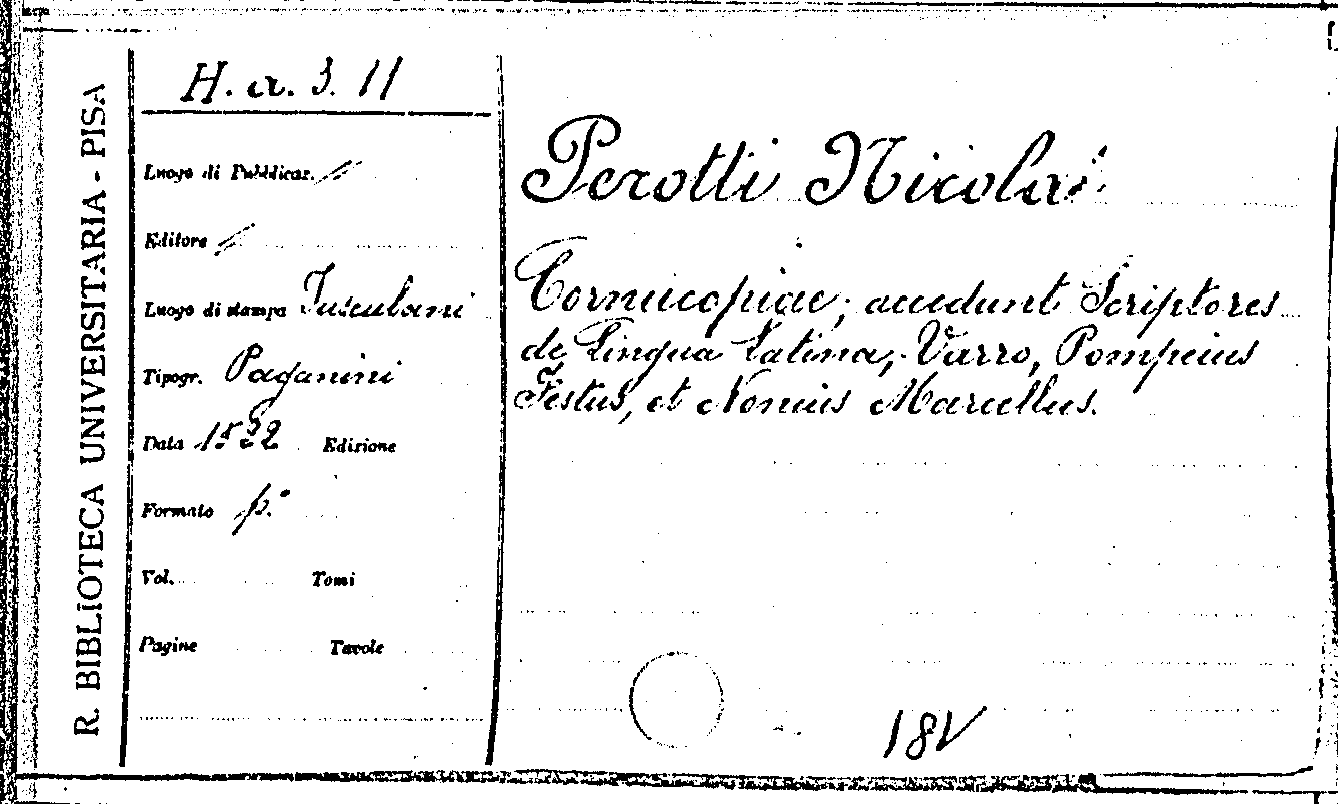 R. BIBLIOTECA UNIVERSITARIA - PISA
H. a. 3. 11
Luogo di Pubblicaz. "
Editore "
Luogo di stampa Tusculani
Tipogr. Paganini
Data 1522 Edizione
Formato f.°
Vol. Tomi
Pagine Tavole
Perotti Nicolai
Cornucopiae; accedunt Scriptores
de Lingua Latina, Varro, Pompeius
Festus, et Nonius Marcellus.
18V